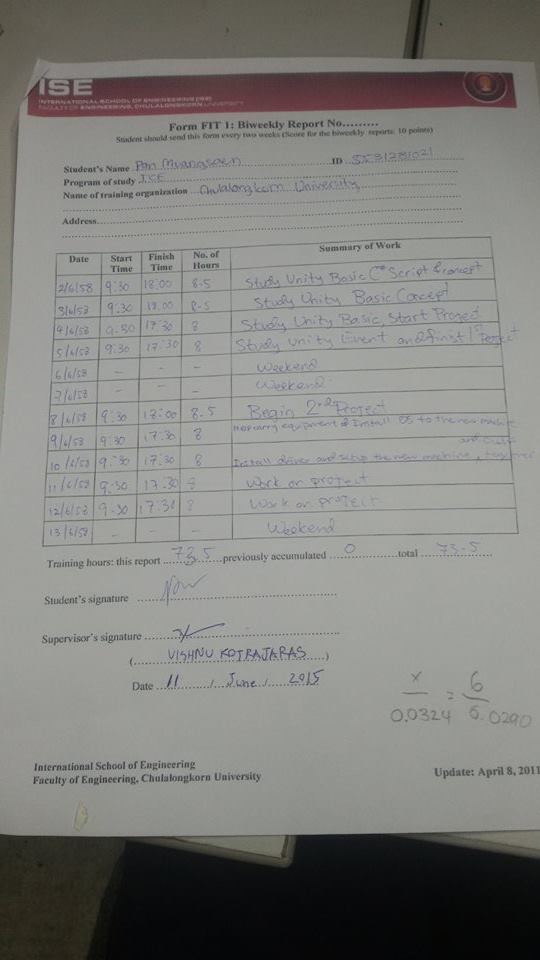 ISE
INTERNATIONAL SCHOOL OF ENGINEERING (ISE)
FACULTY OF ENGINEERING, CHULALONGKORN UNIVERSITY
Form FIT 1: Biweekly Report No.........
Student should send this form every two weeks (Score for the biweekly reports: 10 points)
Student's Name Pan ID
Program of study ICE
Name of training organization Chulalongkorn University
Address
Date Start Time Finish Time No. of Hours Summary of Work
2/6/58 9:30 18.00 8.5 Study Unity Basic C# Script & concept
3/6/58 9:30 18.00 8.5 Study Unity Basic Concept
4/6/58 9.30 17.30 8 Study Unity Basic, Start Project
5/6/58 9:30 17:30 8 Study Unity Event and finist 1st Project
6/6/58 - - - Weekend
7/6/58 - - - Weekend
8/6/58 9:30 18:00 8.5 Begin 2nd Project
9/6/58 9:30 17.30 8 equipment & Install OS to the new machine
10/6/58 9:30 17:30 8 Install driver and setup the new machine, together
11/6/58 9:30 17.30 8 Work on project
12/6/58 9:30 17:30 8 Work on project
13/6/58 - - - Weekend
Training hours: this report 73.5 previously accumulated 0 total 73.5
Student's signature
Supervisor's signature
(VISHNU KOTRAJARAS)
Date 11 June 2015
x/0.0324 = 6/6.0290
International School of Engineering
Faculty of Engineering, Chulalongkorn University
Update: April 8, 2011